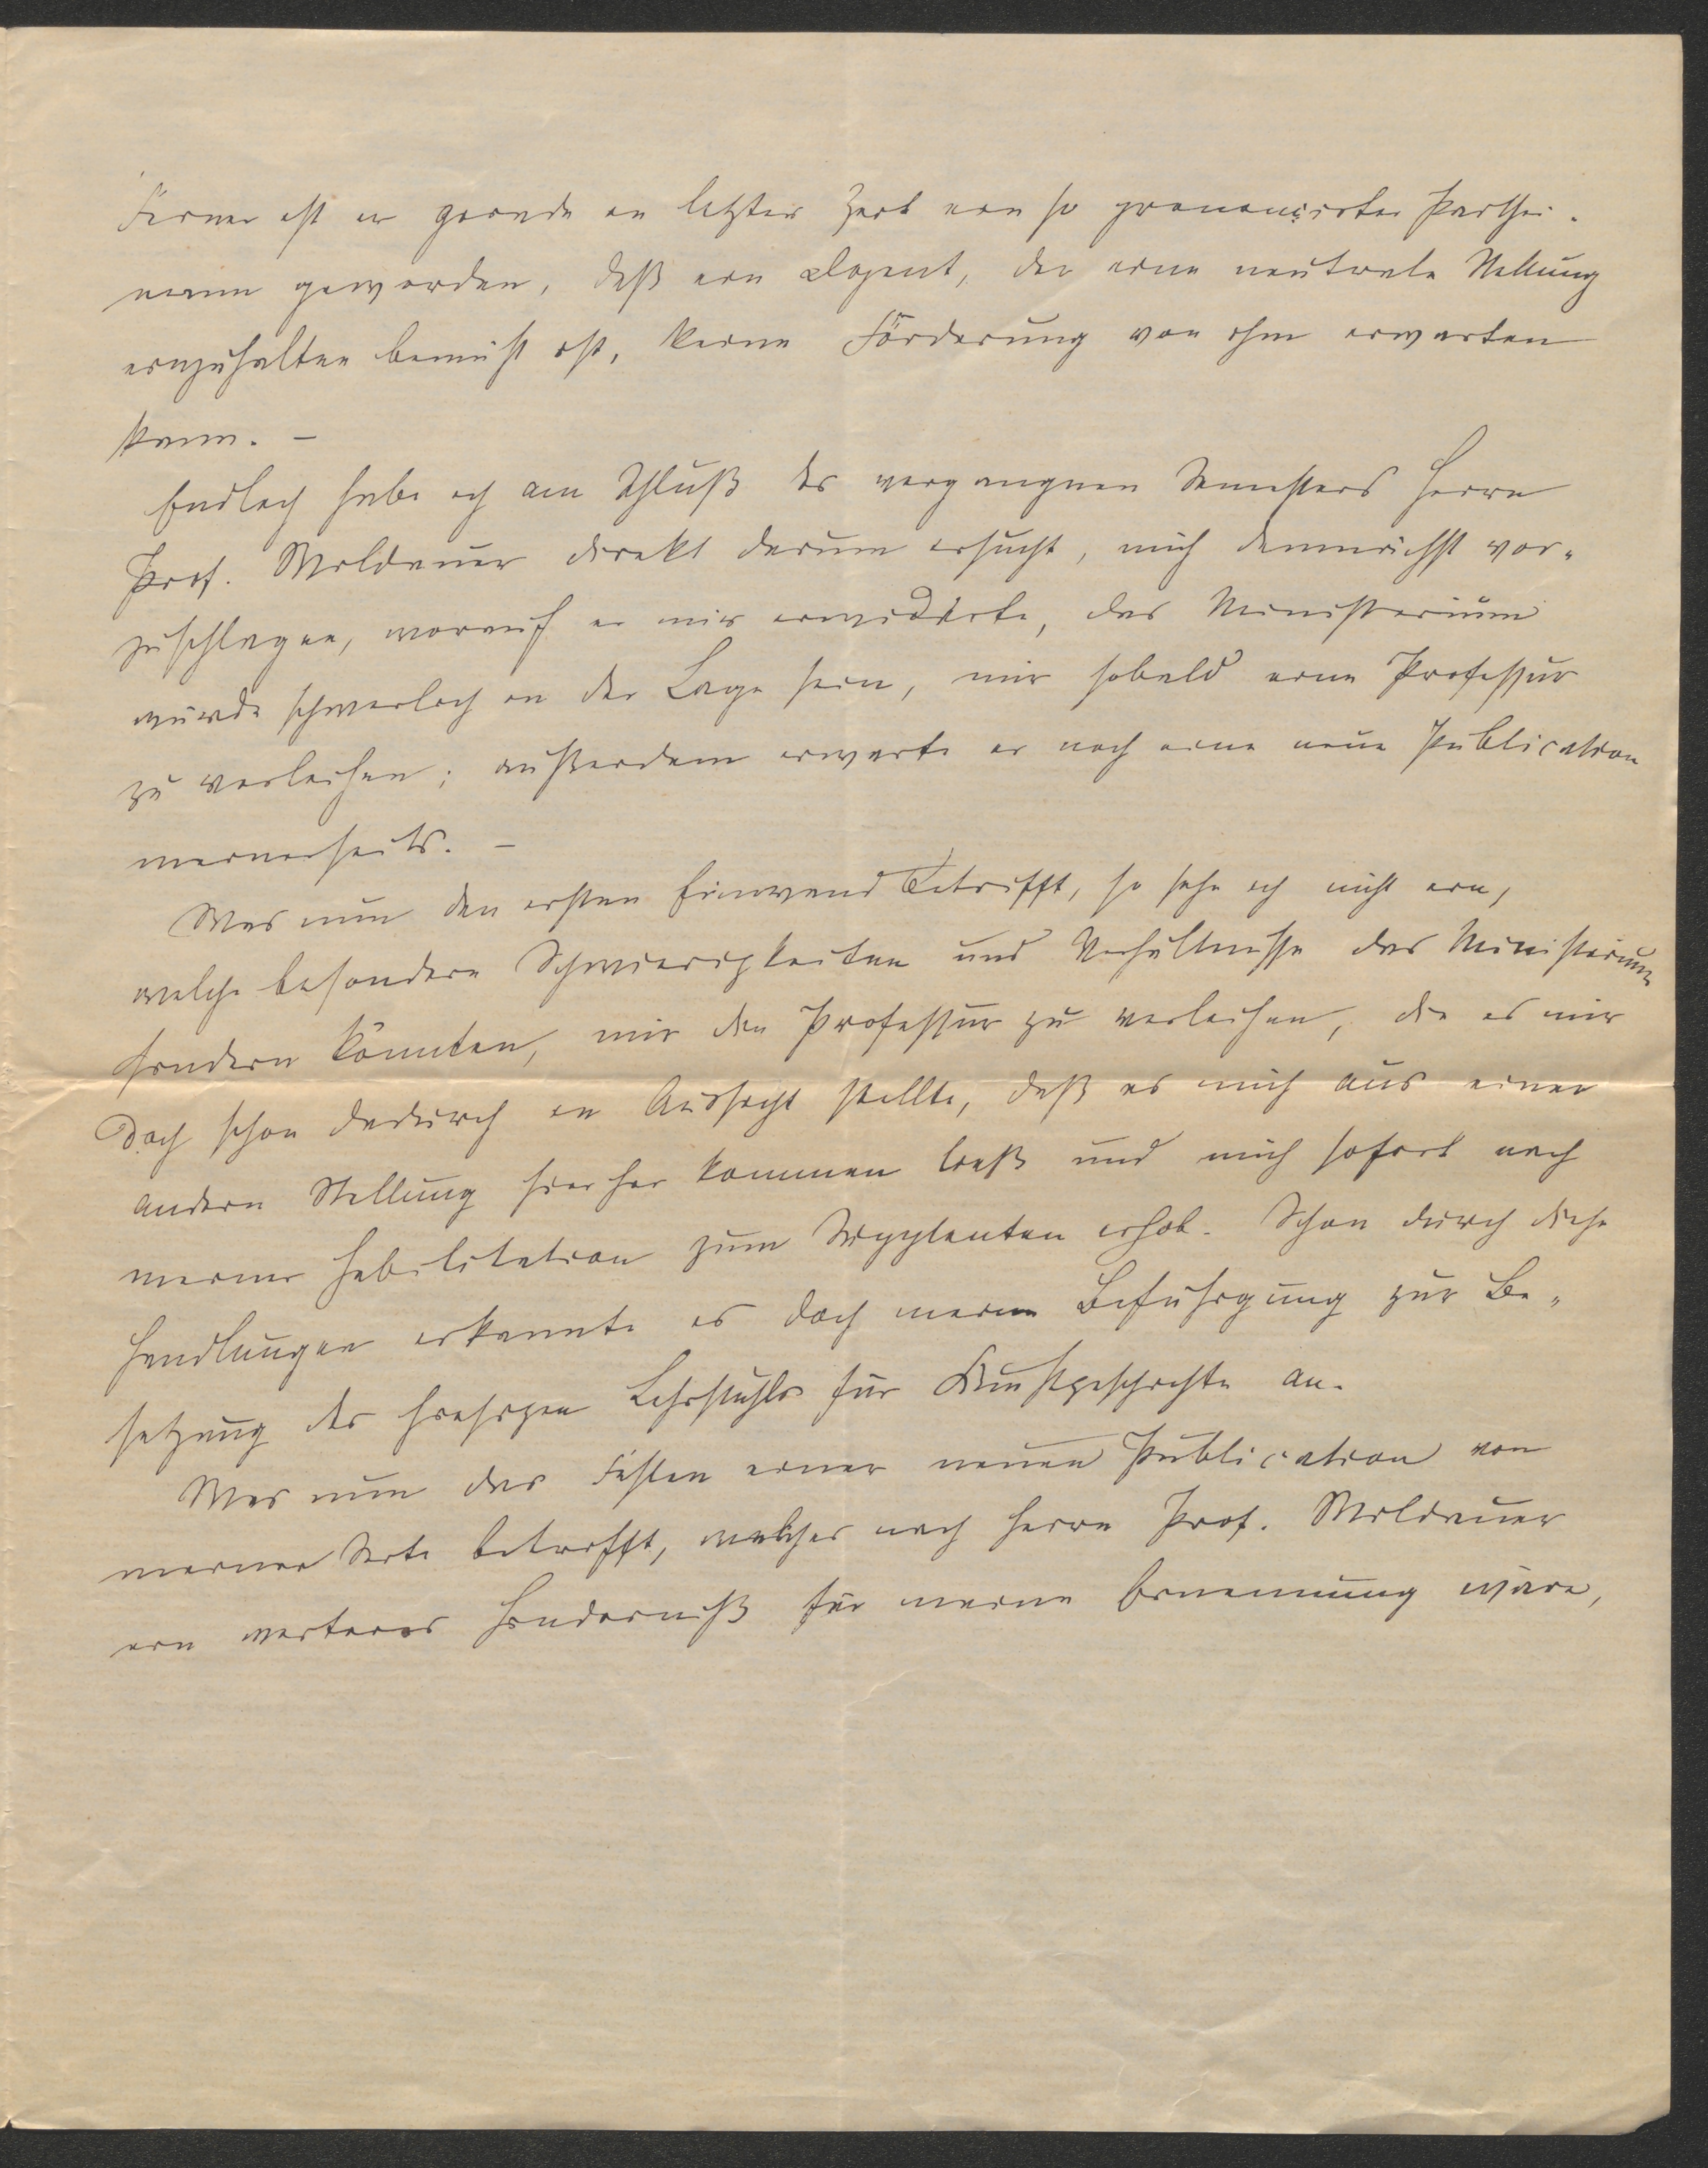 Ferner ist er gerade in letzter Zeit ein so prononcirter Parthei-
mann geworden, daß ein Dozent, der eine neutrale Stellung
einzuhalten bemüht ist, keine Förderung von ihm erwarten
kann. –
Endlich habe ich am Schluß des vergangnen Semesters Herrn
Prof. Woldauer direkt darum ersucht, mich demnächst vor-
zuschlagen, worauf er mir erwiderte, das Ministerium
würde schwerlich in der Lage sein, mir sobald eine Professur
zu verleihen; außerdem erwarte er noch eine neue Publication
meinerseits. –
Was nun den ersten Einwand betrifft, so sehe ich nicht ein,
welche besondern Schwierigkeiten und Verhältnisse das Ministerium
hindern könnten, mir die Professur zu verleihen, die es mir
doch schon dadurch in Aussicht stellte, daß es mich aus einer
andern Stellung hierher kommen ließ und mich sofort nach
meiner Habilitation zum Supplenten erhob. Schon durch diese
Handlungen erkannte es doch meine Befähigung zur Be-
setzung des hiesigen Lehrstuhls für Kunstgeschichte an.
Was nun das Fehlen einer neuen Publication von
meiner Seite betrifft, welches nach Herrn Prof. Woldauer
ein weiteres Hinderniß für meine Ernennung wäre,